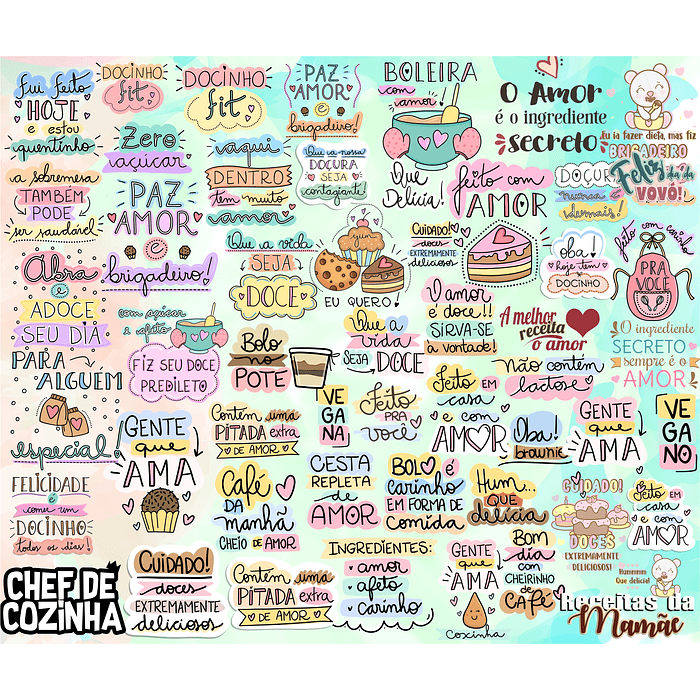 fui feito
HOJE
e estou
quentinho
DOCINHO
fit
DOCINHO
fit
PAZ
AMOR
e
brigadeiro!
BOLEIRA
com
amor
O Amor
é o ingrediente
secreto
Eu ia fazer dieta, mas fiz
BRIGADEIRO
Zero
açúcar
aqui
DENTRO
tem muito
amor
Que a nossa
DOÇURA
SEJA
contagiante!
Que
Delícia!
feito com
AMOR
DOÇURA
nunca
é demais!
Feliz
dia da
VOVÓ!
a sobremesa
TAMBÉM
PODE
ser saudável
PAZ
AMOR
e
brigadeiro!
Que a vida
SEJA
DOCE
EU QUERO!
CUIDADO!
doces
EXTREMAMENTE
deliciosos
oba!
hoje tem
DOCINHO
feito com carinho
PRA
VOCÊ
Abra
e
ADOCE
SEU DIA
com açúcar
e afeto
FIZ SEU DOCE
PREDILETO
Bolo
no
POTE
Que a
vida
SEJA DOCE
O amor
é doce!!
SIRVA-SE
à vontade!
A melhor
receita é
o amor
O ingrediente
SECRETO
sempre é o
AMOR
PARA
ALGUÉM
especial!
GENTE
que
AMA
Contém uma
PITADA extra
DE AMOR
VE
GA
NA
Feito
PRA
você
Feito EM
casa
e com
AMOR
não contém
lactose
Oba!
brownie
GENTE
que
AMA
VE
GA
NO
FELICIDADE
é
comer um
DOCINHO
todos os dias!
Café
da
manhã
CHEIO DE AMOR
CESTA
REPLETA
de
AMOR
BOLO é
carinho
EM FORMA DE
comida
Hum...
QUE
delícia
CUIDADO!
DOCES
EXTREMAMENTE
DELICIOSOS!
Feito EM
casa
e com
AMOR
CHEF DE
COZINHA
CUIDADO!
doces
EXTREMAMENTE
deliciosos
Contém uma
PITADA extra
DE AMOR
INGREDIENTES:
amor
afeto
carinho
GENTE
que
AMA
coxinha
BOM
dia
COM
CHEIRINHO
de
CAFÉ
Hummmm
Que delícia!
Receitas da
Mamãe